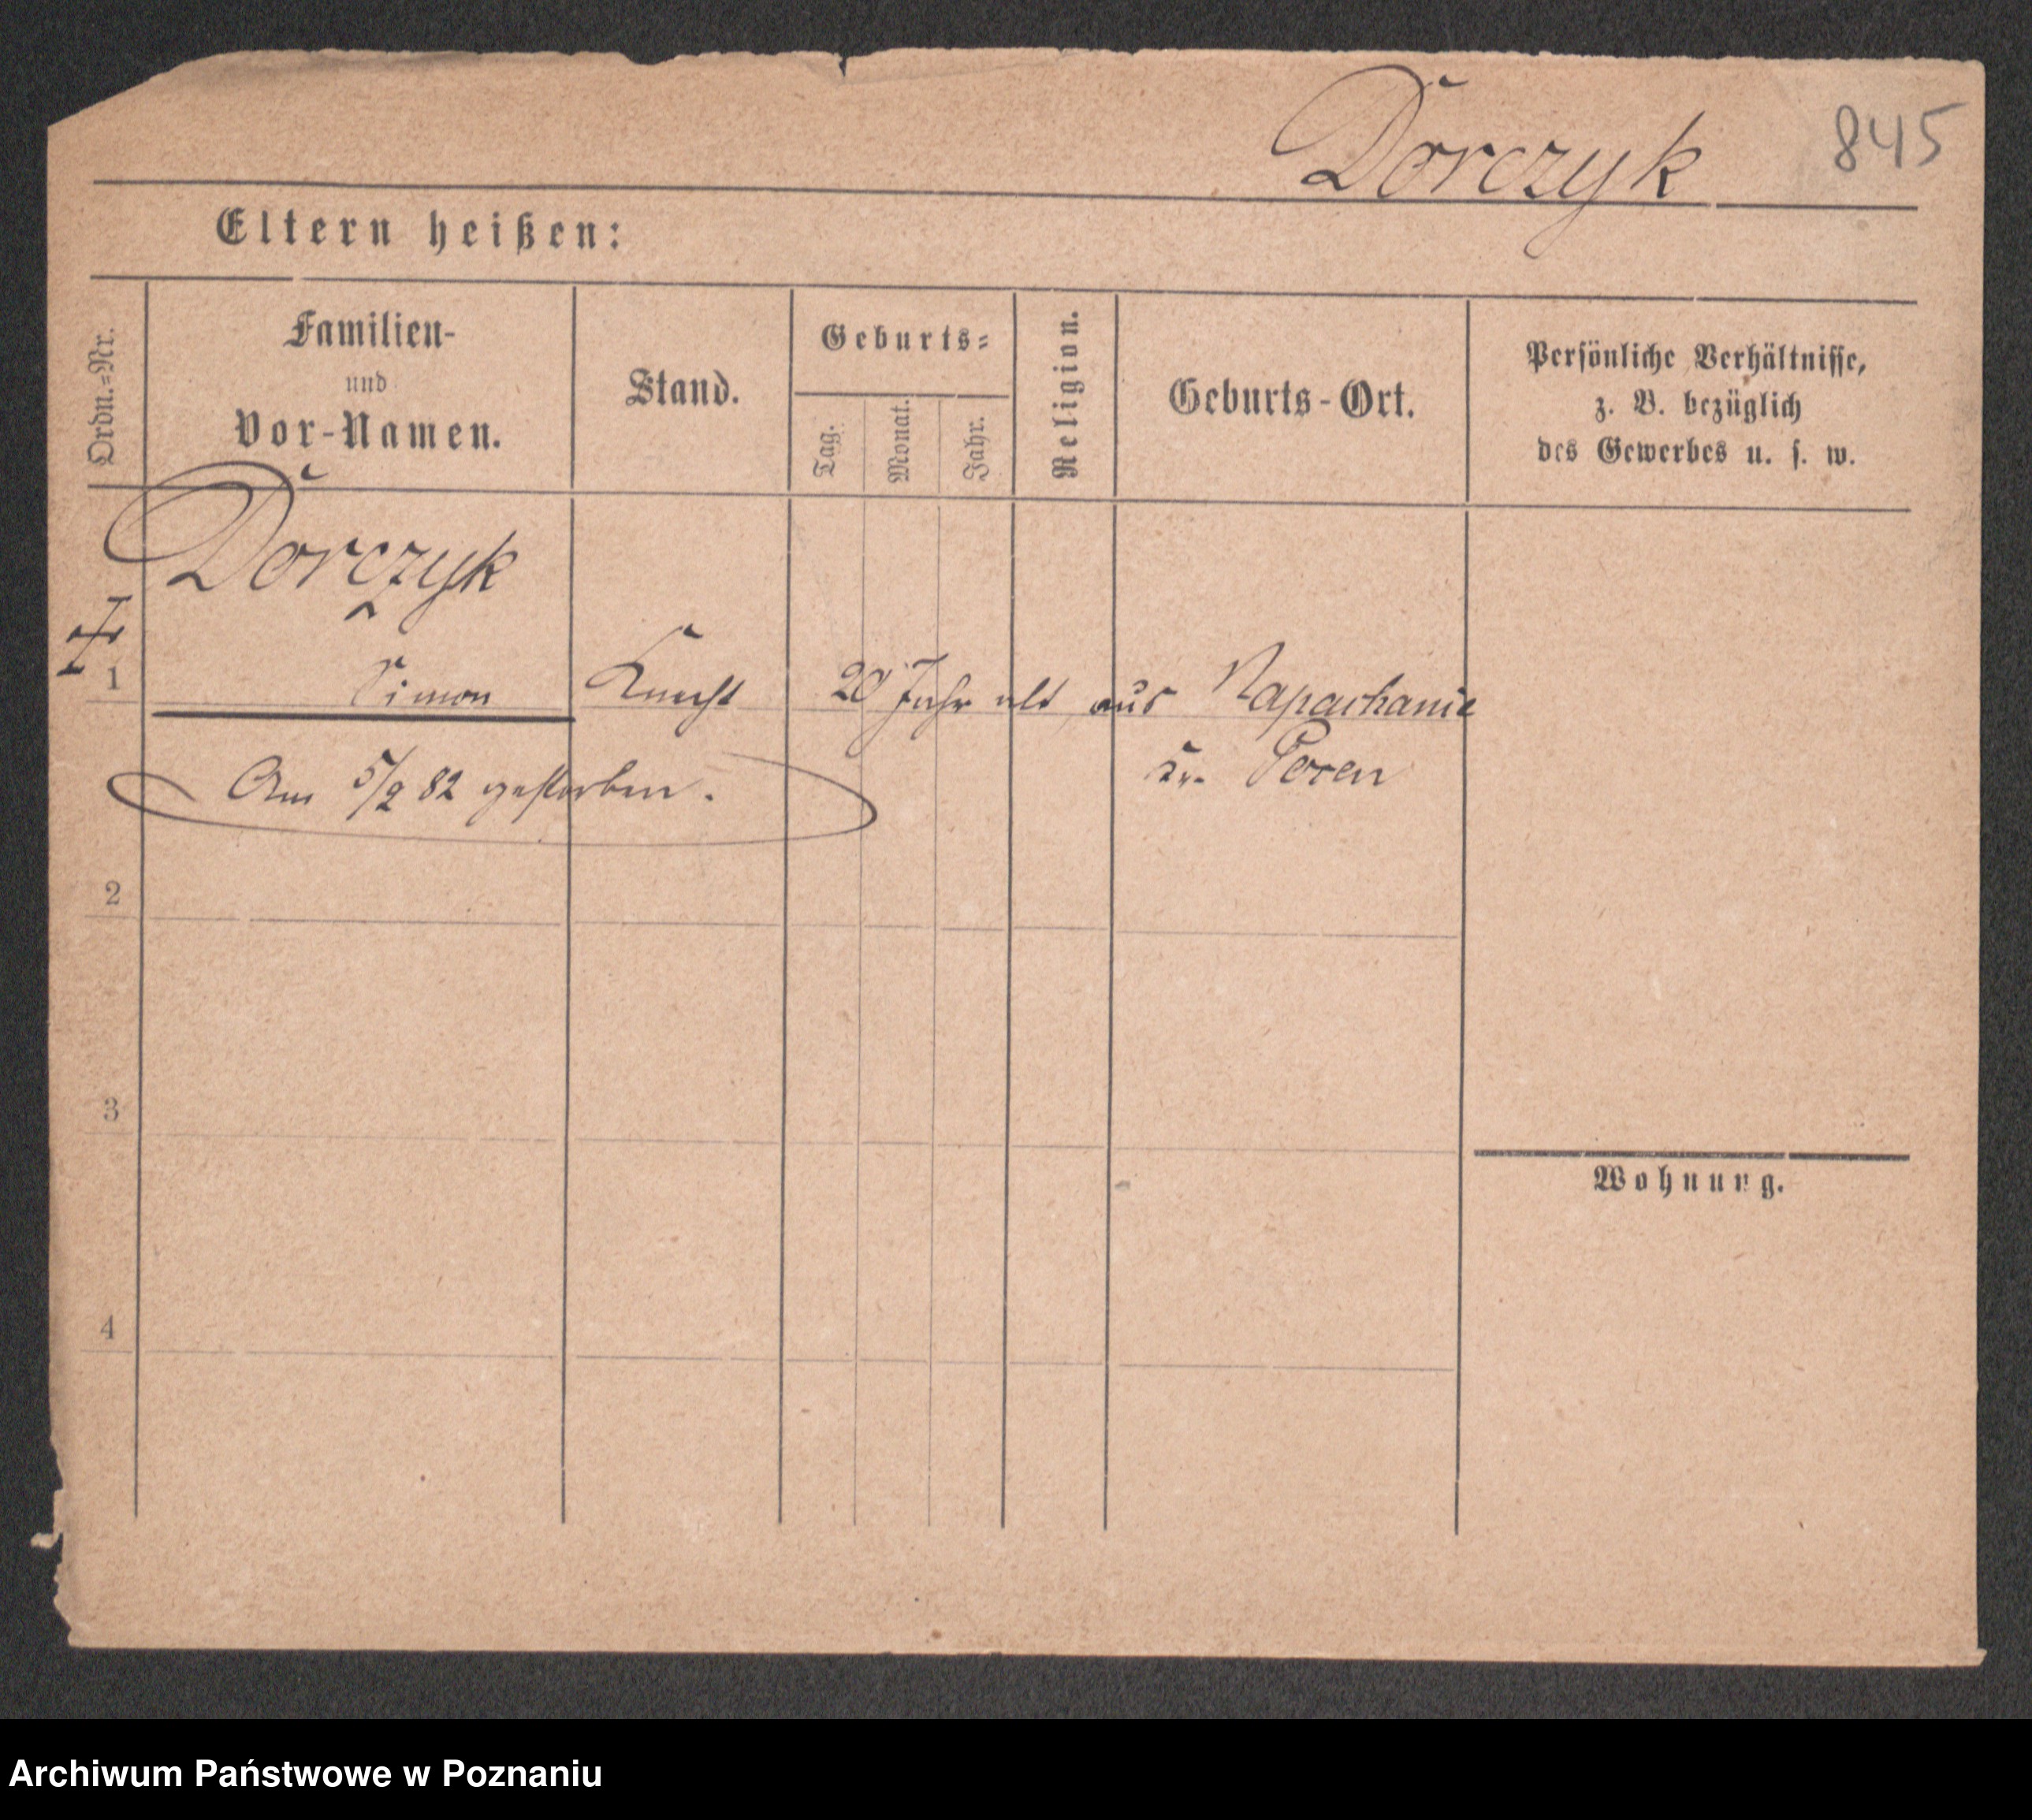 Dorczyk 845
Eltern heißen:
Ordn.=Nr.
Familien-
und
Vor-Namen.
Stand.
Geburts=
Tag.
Monat.
Jahr.
Religion.
Geburts-Ort.
Persönliche Verhältnisse,
z. B. bezüglich
des Gewerbes u. s. w.
Dorczyk
1 Simon Knecht 20 Jahr alt aus Napachanie
Kr. Posen
Am 5/9 82 gestorben.
2
3
Wohnung.
4
Archiwum Państwowe w Poznaniu